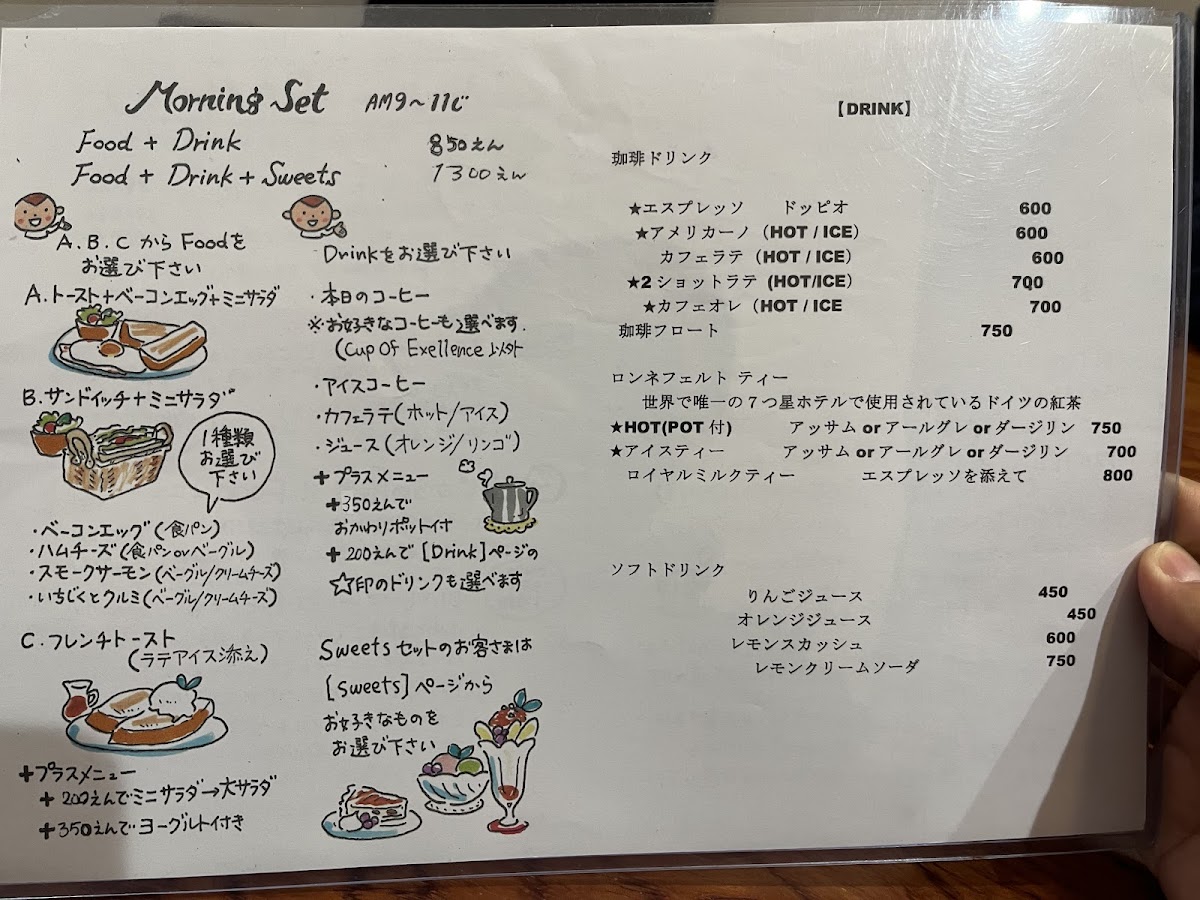 Morning Set AM9~11じ
Food + Drink 850えん
Food + Drink + Sweets 1300えん
A.B.CからFoodを
お選び下さい
A.トースト+ベーコンエッグ+ミニサラダ
B.サンドイッチ+ミニサラダ
1種類
お選び
下さい
・ベーコンエッグ(食パン)
・ハムチーズ(食パンorベーグル)
・スモークサーモン(ベーグル/クリームチーズ)
・いちじくとクルミ(ベーグル/クリームチーズ)
C.フレンチトースト
(ラテアイス添え)
+プラスメニュー
+200えんでミニサラダ→大サラダ
+350えんでヨーグルト付き
Drinkをお選び下さい
・本日のコーヒー
※お好きなコーヒーも選べます.
(Cup Of Exellence 以外
・アイスコーヒー
・カフェラテ(ホット/アイス)
・ジュース(オレンジ/リンゴ)
+プラスメニュー
+350えんで
おかわりポット付
+200えんで[Drink]ページの
☆印のドリンクも選べます
Sweetsセットのお客さまは
[Sweets]ページから
お好きなものを
お選び下さい
【DRINK】
珈琲ドリンク
★エスプレッソ ドッピオ 600
★アメリカーノ(HOT / ICE) 600
カフェラテ(HOT / ICE) 600
★2ショットラテ(HOT/ICE) 700
★カフェオレ(HOT / ICE 700
珈琲フロート 750
ロンネフェルト ティー
世界で唯一の7つ星ホテルで使用されているドイツの紅茶
★HOT(POT付) アッサム or アールグレ or ダージリン 750
★アイスティー アッサム or アールグレ or ダージリン 700
ロイヤルミルクティー エスプレッソを添えて 800
ソフトドリンク
りんごジュース 450
オレンジジュース 450
レモンスカッシュ 600
レモンクリームソーダ 750